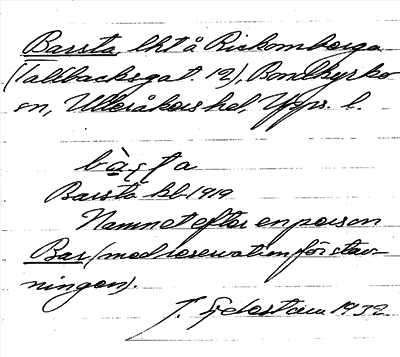 Barsta lht å Rickomberga
(Tallbacksgat. 12), Bondkyrko
sn, Ulleråkers hd, Upps. l.
Barsta kb 1919
Namnet efter en person
Bar (med reservation för stav-
ningen).
J. Sjöstam 1932